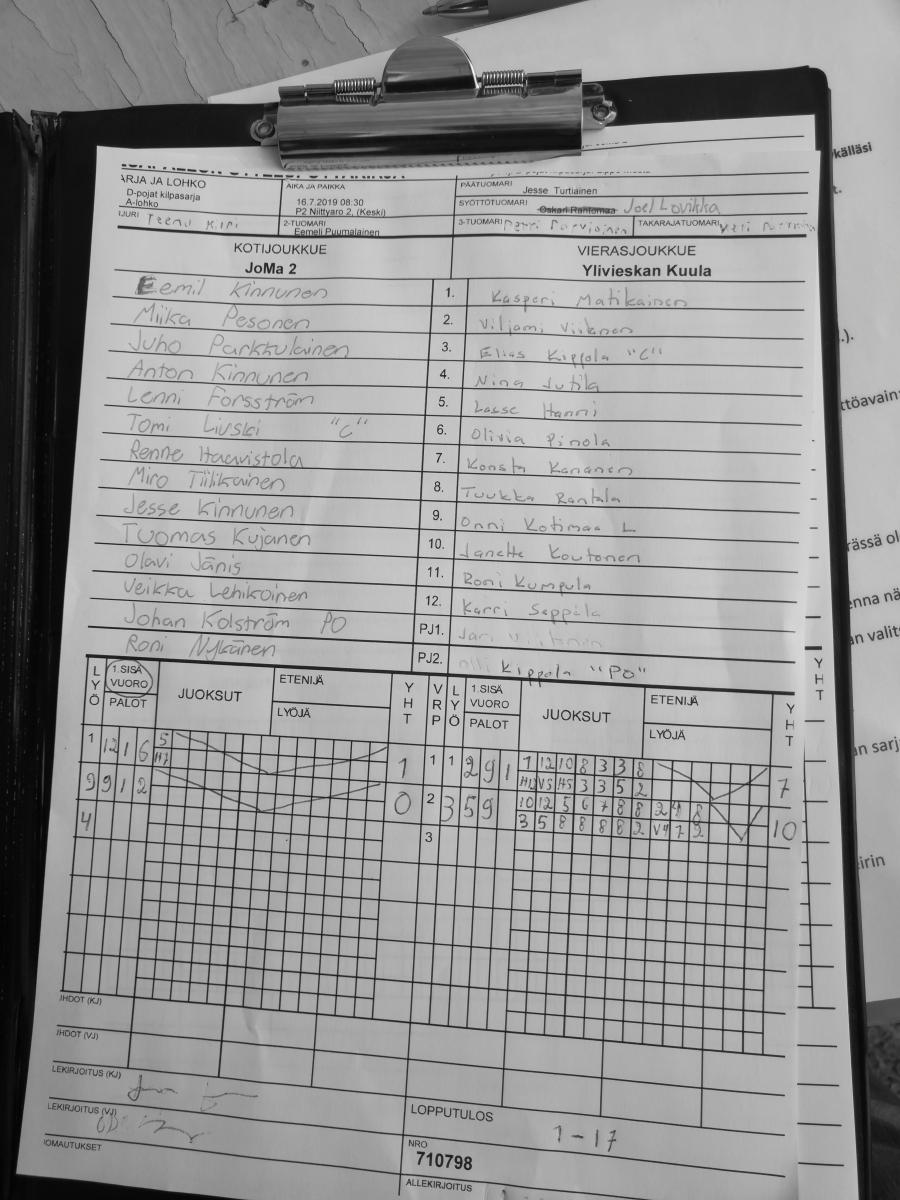 ARJA JA LOHKO
D-pojat kilpasarja
A-lohko
AIKA JA PAIKKA
16.7.2019 08:30
P2 Niittyaro 2, (Keski)
PÄÄTUOMARI
Jesse Turtiainen
SYÖTTÖTUOMARI
Oskari Rantomaa Joel Lovikka
2-TUOMARI
Eemeli Puumalainen
3-TUOMARI
TAKARAJATUOMARI
KOTIJOUKKUE
JoMa 2
VIERASJOUKKUE
Ylivieskan Kuula
Eemil Kinnunen 1. Kasperi Matikainen
Miika Pesonen 2. Viljami Viiknen
Juho Parkkulainen 3. Elias Kippola "C"
Anton Kinnunen 4. Nina Jutila
Lenni Forsström 5. Lasse Hanni
Tomi Liuski "C" 6. Olivia Pinola
Renne Haavistola 7. Konsta Kananen
Miro Tiilikainen 8. Tuukka Rantala
Jesse Kinnunen 9. Onni Kotimaa L
Tuomas Kujanen 10. Janette Koutonen
Olavi Jänis 11. Roni Kumpula
Veikka Lehikoinen 12. Karri Seppälä
Johan Kolström PO PJ1. Jari
Roni Nykänen PJ2. Olli Kippola "PO"
LYÖ 1.SISÄ VUORO PALOT JUOKSUT ETENIJÄ LYÖJÄ YHT VRP LYÖ 1.SISÄ VUORO PALOT JUOKSUT ETENIJÄ LYÖJÄ YHT
1 12 1 6 5 1 1 1 2 9 1 1 12 10 8 3 3 8 7
H7 H12 V5 H5 3 3 5 2
9 9 1 2 0 2 3 5 9 10 12 5 6 7 8 8 2 4 8 10
3 5 8 8 8 8 2 V4 7 2
4 3
LEKIRJOITUS (KJ)
LEKIRJOITUS (VJ)
LOPPUTULOS
1 - 17
NRO
710798
ALLEKIRJOITUS
YHT